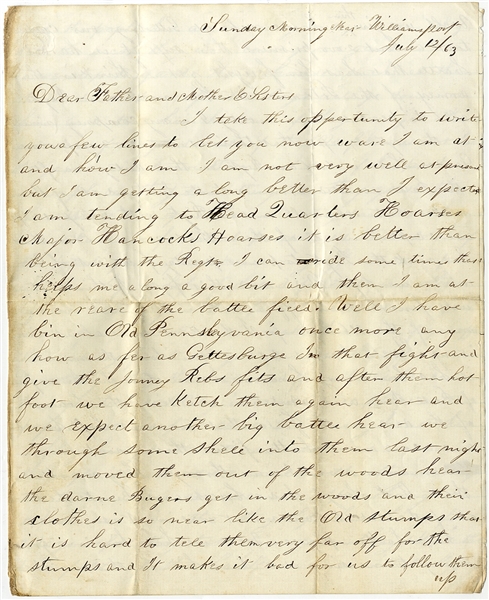 Sunday Morning Near Williamsport
July 12/63
Dear Father and Mother & Sisters
I take this oppertunity to write
you a few lines to let you now ware I am at
and how I am I am not very well at present
but I am getting a long better than I expected
I am tending to Head Quarters Hoarses
Major Hancocks Hoarses it is better than
being with the Regt. I can ride some times that
helps me along a good bit and then I am at
the reare of the battle field. Well I have
bin in Old Pennslyvania once more any
how as fer as Gettesburge In that fight and
give the Joney Rebs fits and after them hot
foot we have Ketch them again hear and
we expect another big battle hear we
through some shele into them last night
and moved them out of the woods hear
the darne Bugers get in the woods and their
clothes is so near like the Old stumps that
it is hard to tele them very far off for the
stumps and It makes it bad for us to follow them
up